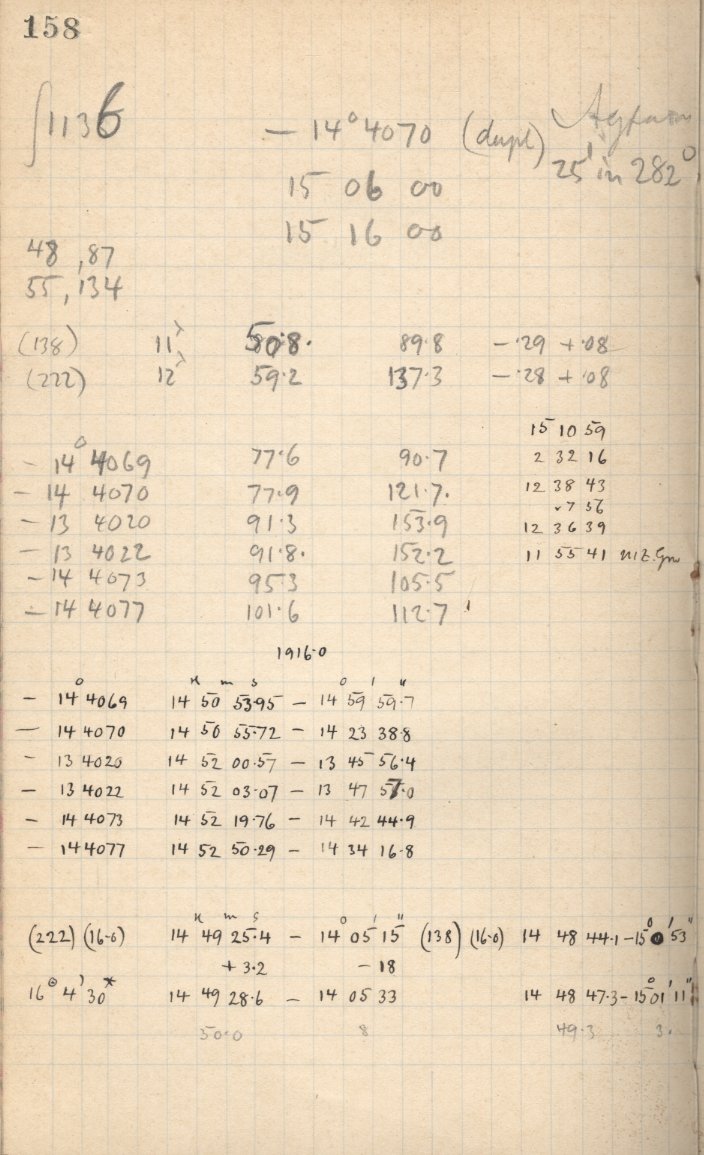 158
∫1136 — 14° 4070 (dupl)
25' in 282°
15 06 00
15 16 00
48 , 87
55 , 134
(138) 11 50.8. 89.8 — .29 + .08
(222) 12 59.2 137.3 — .28 + .08
15 10 59
— 14° 4069 77.6 90.7 2 32 16
— 14 4070 77.9 121.7. 12 38 43
7 56
— 13 4020 91.3 153.9 12 36 39
— 13 4022 91.8. 152.2 11 55 41
— 14 4073 95.3 105.5
— 14 4077 101.6 112.7
1916.0
H m s ° ' "
— 14° 4069 14 50 53.95 — 14 59 59.7
— 14 4070 14 50 55.72 — 14 23 38.8
— 13 4020 14 52 00.57 — 13 45 56.4
— 13 4022 14 52 03.07 — 13 47 57.0
— 14 4073 14 52 19.76 — 14 42 44.9
— 14 4077 14 52 50.29 — 14 34 16.8
H m s ° ' " ° ' "
(222) (16.0) 14 49 25.4 — 14 05 15 (138) (16.0) 14 48 44.1 — 15 0 53
+ 3.2 — 18
16° 4' 30* 14 49 28.6 — 14 05 33 14 48 47.3 — 15° 01' 11"
30.0 8 49.3 3.